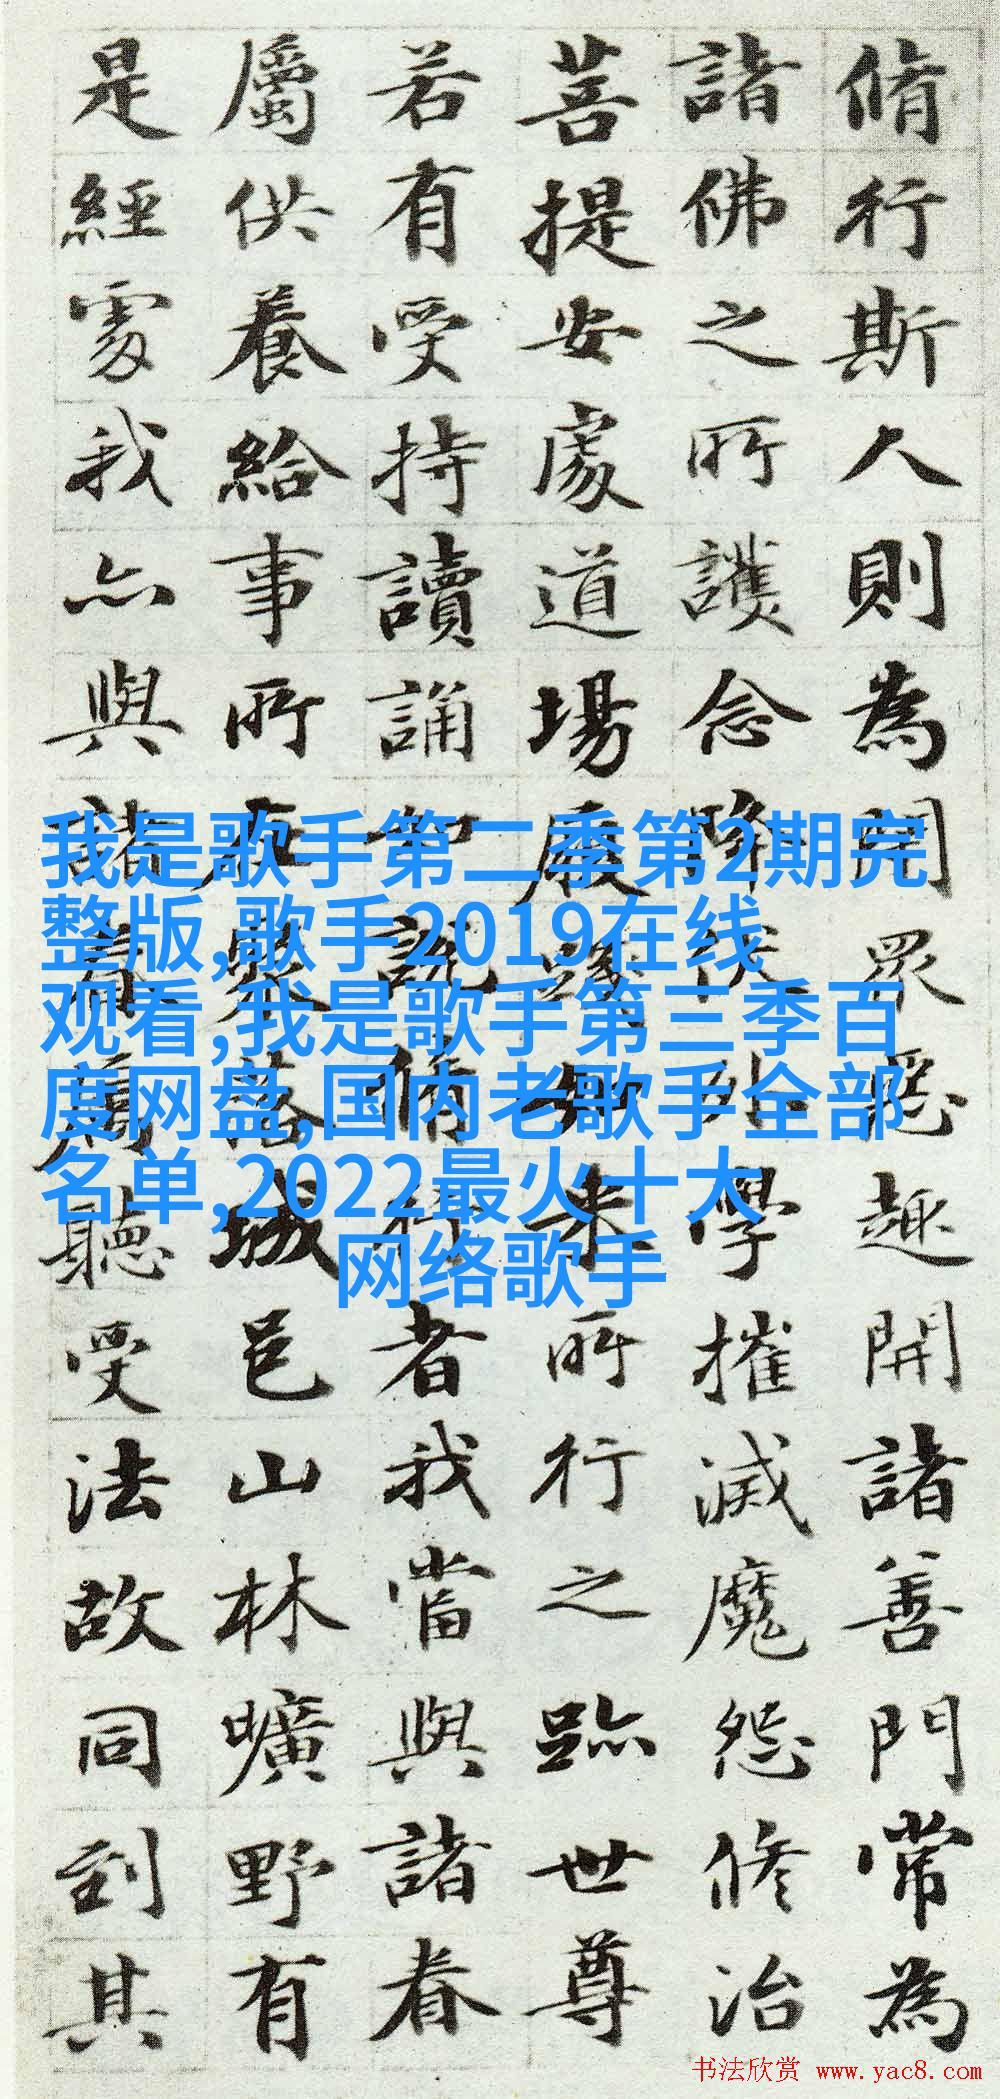 脩行斯人則為閇眾惡趣開諸善門常為
諸佛之所護念降伏外學摧滅魔怨修治
菩提安處道場履踐如來所行之跡世尊
若有受持讀誦如說脩行者我當與諸眷
屬供養給事所在聚落城邑山林曠野有
是經處我亦與諸眷屬聽受法故同到其
我是歌手第二季第2期完
整版,歌手2019在线
观看,我是歌手第三季百
度网盘,国内老歌手全部
名单,2022最火十大
网络歌手
书法欣赏 www.yac8.com